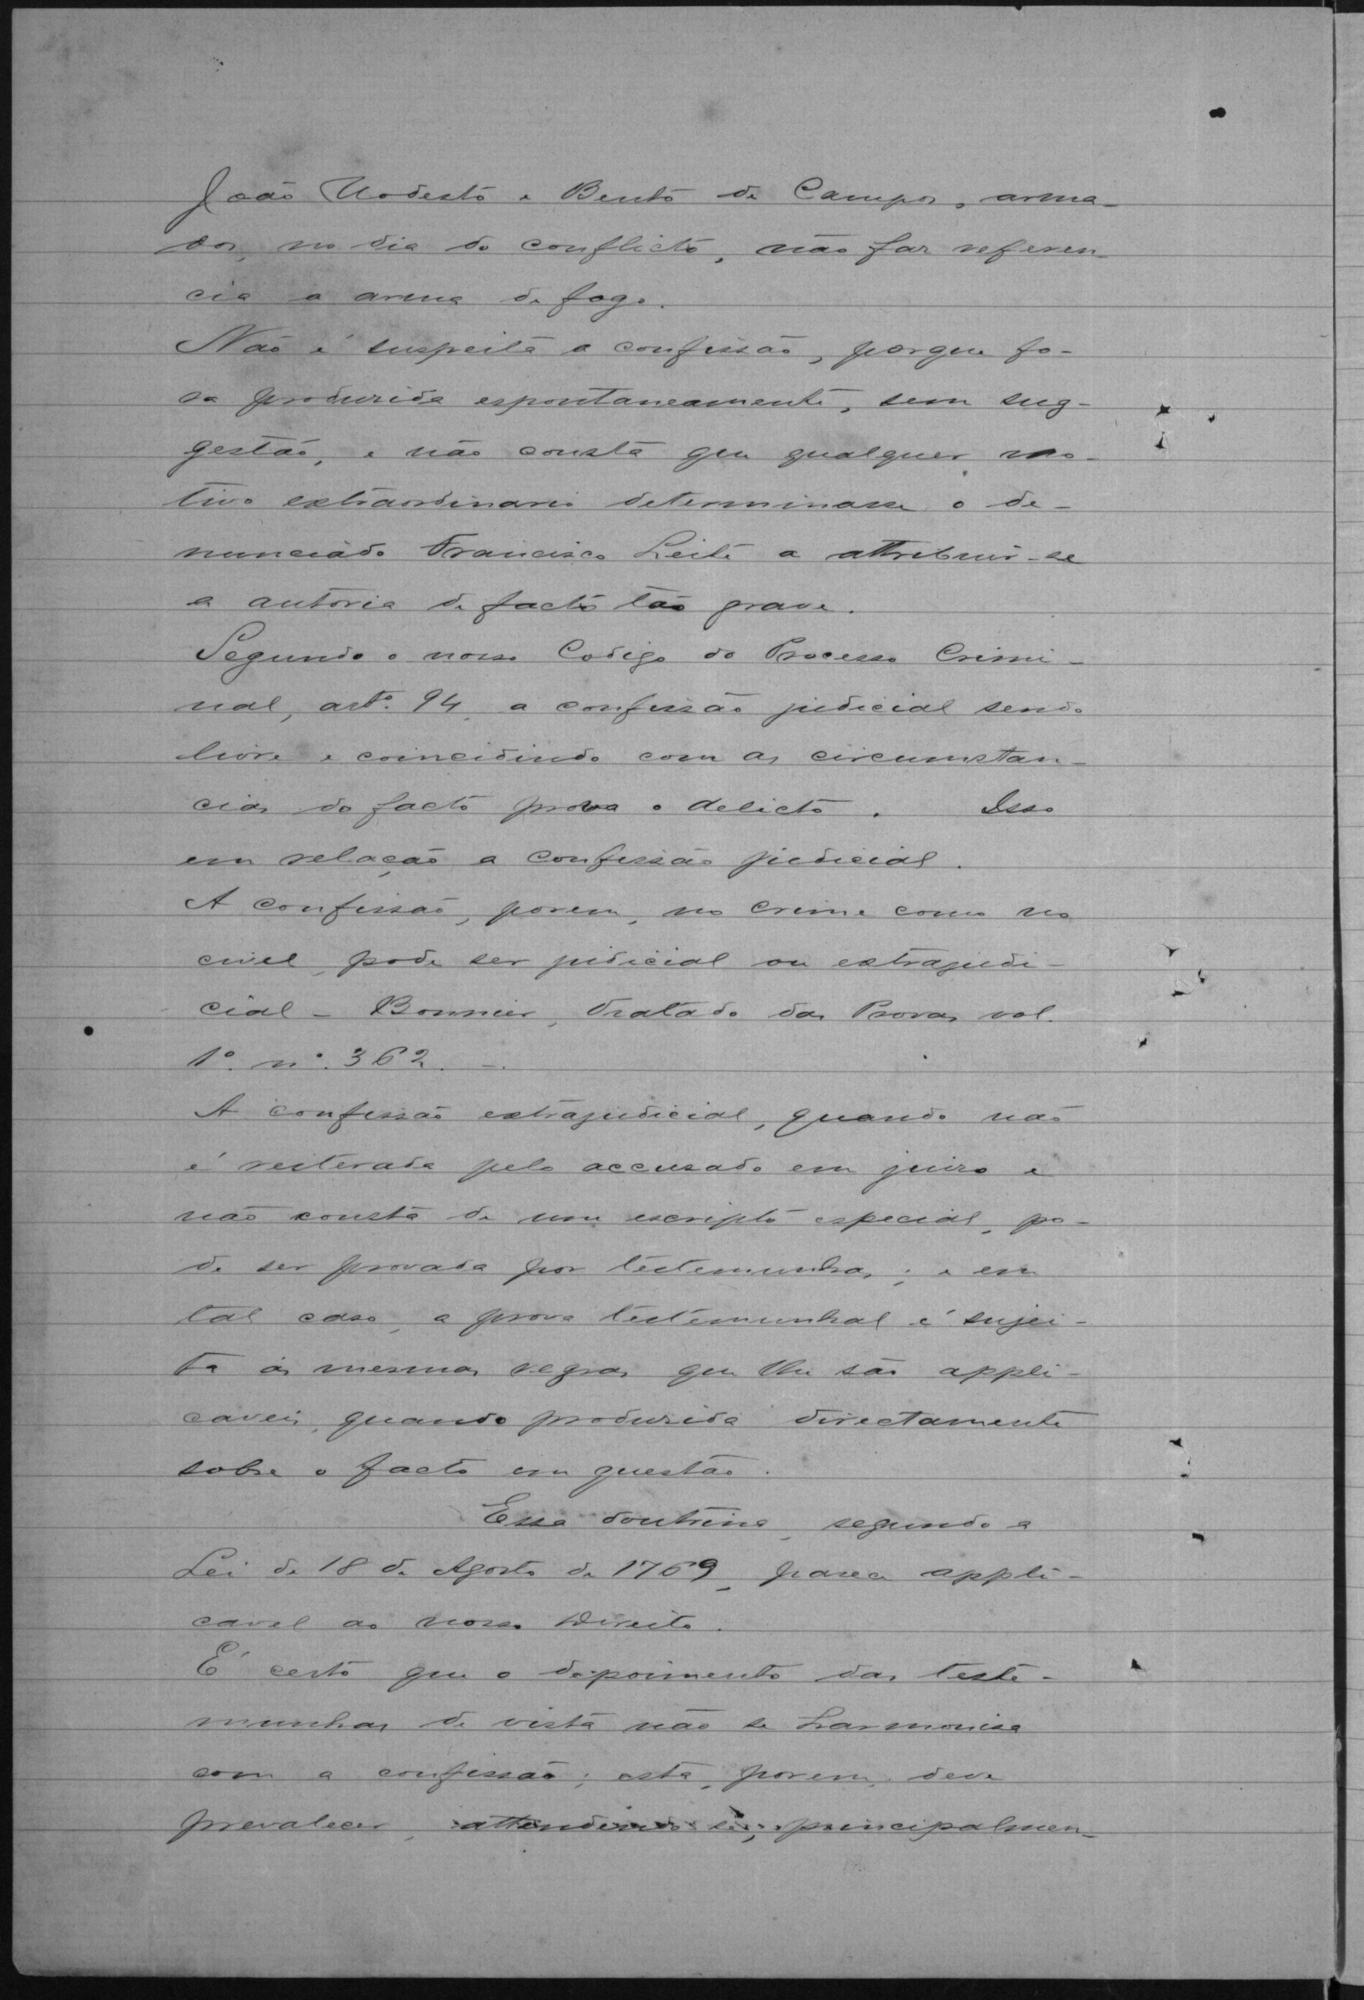 João Modesto e Bento de Campos, arma-
dos, no dia do conflicto, não faz referen-
cia a arma de fogo.
Não é suspeita a confissão, porque fo-
ra produzida espontaneamente, sem sug-
gestão, e não consta que qualquer mo-
tivo extraordinario determinasse o de-
nunciado Francisco Leite a attribuir-se
a autoria de facto tão grave.
Segundo o nosso Codigo do Processo Crimi-
nal, artº. 94, a confissão judicial sendo
livre e coincidindo com as circumstan-
cias do facto prova o delicto. Isso
em relação a confissão judicial.
A confissão, porem, no crime como no
civel, pode ser judicial ou extrajudi-
cial - Bonnier, Tratado das Provas vol.
1º. nº. 362. -.
A confissão extrajudicial, quando não
é reiterada pelo accusado em juizo e
não consta de um escripto especial, po-
de ser provada por testemunhas; e em
tal caso, a prova testemunhal é sujei-
ta ás mesmas regras que lhe são appli-
caveis, quando produzida directamente
sobre o facto em questão.
Essa doutrina, segundo a
Lei de 18 de Agosto de 1769, parece appli-
cavel ao nosso Direito.
É certo que o depoimento das teste-
munhas de vista não se harmonisa
com a confissão; esta, porem, deve
prevalecer, attendendo-se, principalmen-